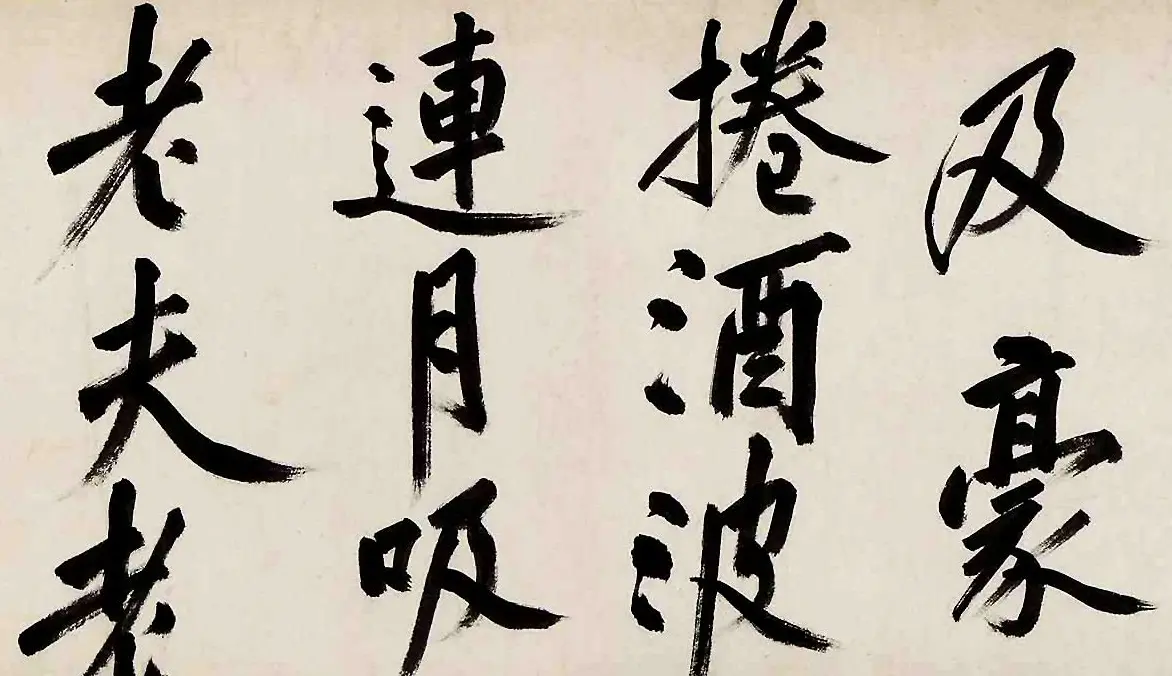 及豪
捲酒波
連月吸
老夫老